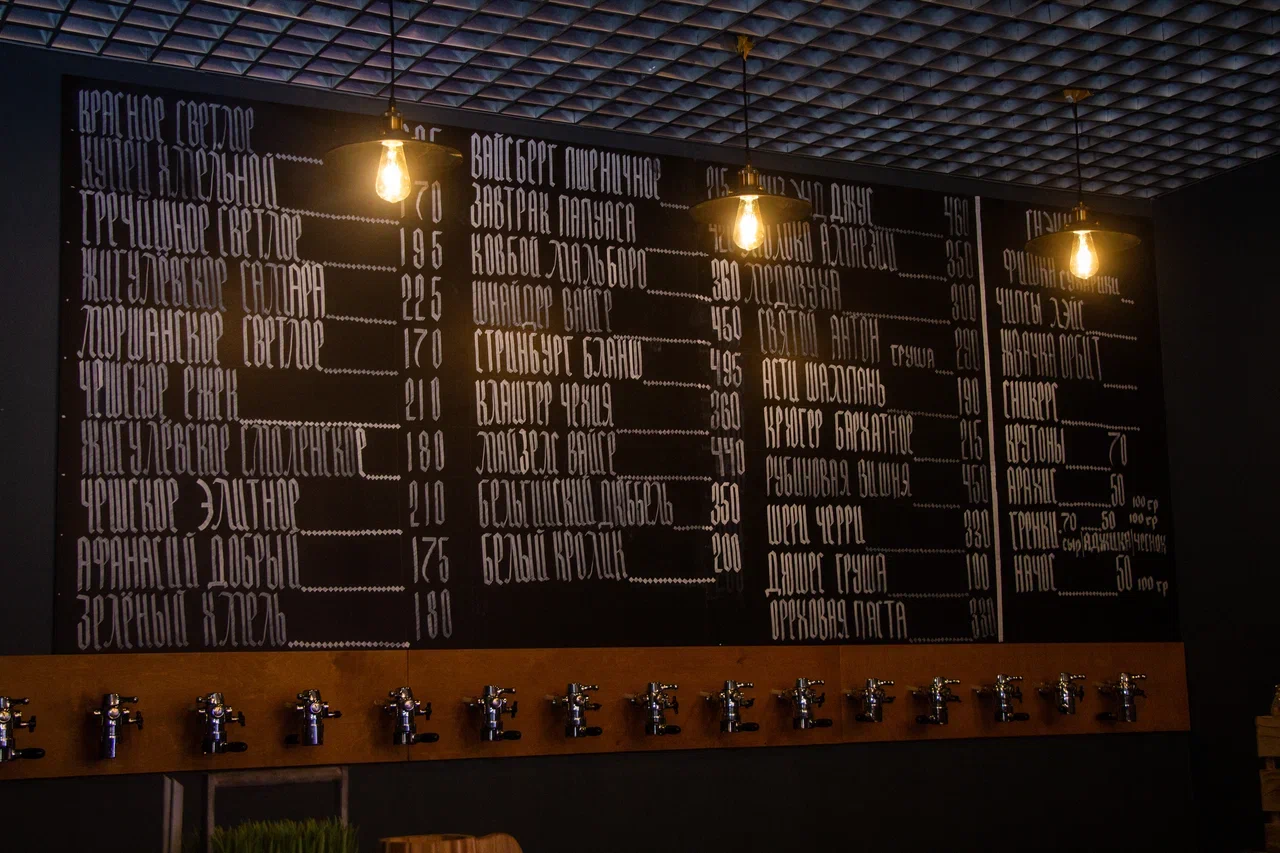 КРАСНОЕ СВЕТЛОЕ
КУПЕЦ ХМЕЛЬНОЙ 70
ГРЕЧИШНОЕ СВЕТЛОЕ 195
ЖИГУЛЁВСКОЕ САМАРА 225
ЛОРШАНСКОЕ СВЕТЛОЕ 170
ЧЕШСКОЕ РЖЕН 210
ЖИГУЛЁВСКОЕ СМОЛЕНСКОЕ 180
ЧЕШСКОЕ ЭЛИТНОЕ 210
АФАНАСИЙ ДОБРЫЙ 175
ЗЕЛЁНЫЙ ХМЕЛЬ 180
ВАЙСБЕРГ ПШЕНИЧНОЕ 215
ЗАВТРАК ПАПУАСА
КОВБОЙ МАЛЬБОРО 360
ШНАЙДЕР ВАЙСЕ 450
СТРИНБУРГ БЛАНШ 495
КЛАШТЕР ЧЕХИЯ 380
МАЙЗЕЛС ВАЙСЕ 440
БЕЛЬГИЙСКИЙ ДУББЕЛЬ 350
БЕЛЫЙ КРОЛИК 200
ДЖУС 460
350
МЕДОВУХА 300
СВЯТОЙ АНТОН ГРУША 290
АСТИ ШАМПАНЬ 190
КРЮГЕР БАРХАТНОЕ 215
РУБИНОВАЯ ВИШНЯ 450
ШЕРИ ЧЕРРИ 330
ДЮШЕС ГРУША 100
ОРЕХОВАЯ ПАСТА 330
ФИШКА СУХАРИКИ
ЧИПСЫ ЛЭЙС
ЖВАЧКА ОРБИТ
СНИКЕРС
КРУТОНЫ 70
АРАХИС 50 100 гр
ГРЕНКИ 70 50 100 гр
СЫР АДЖИКА ЧЕСНОК
НАЧОС 50 100 гр